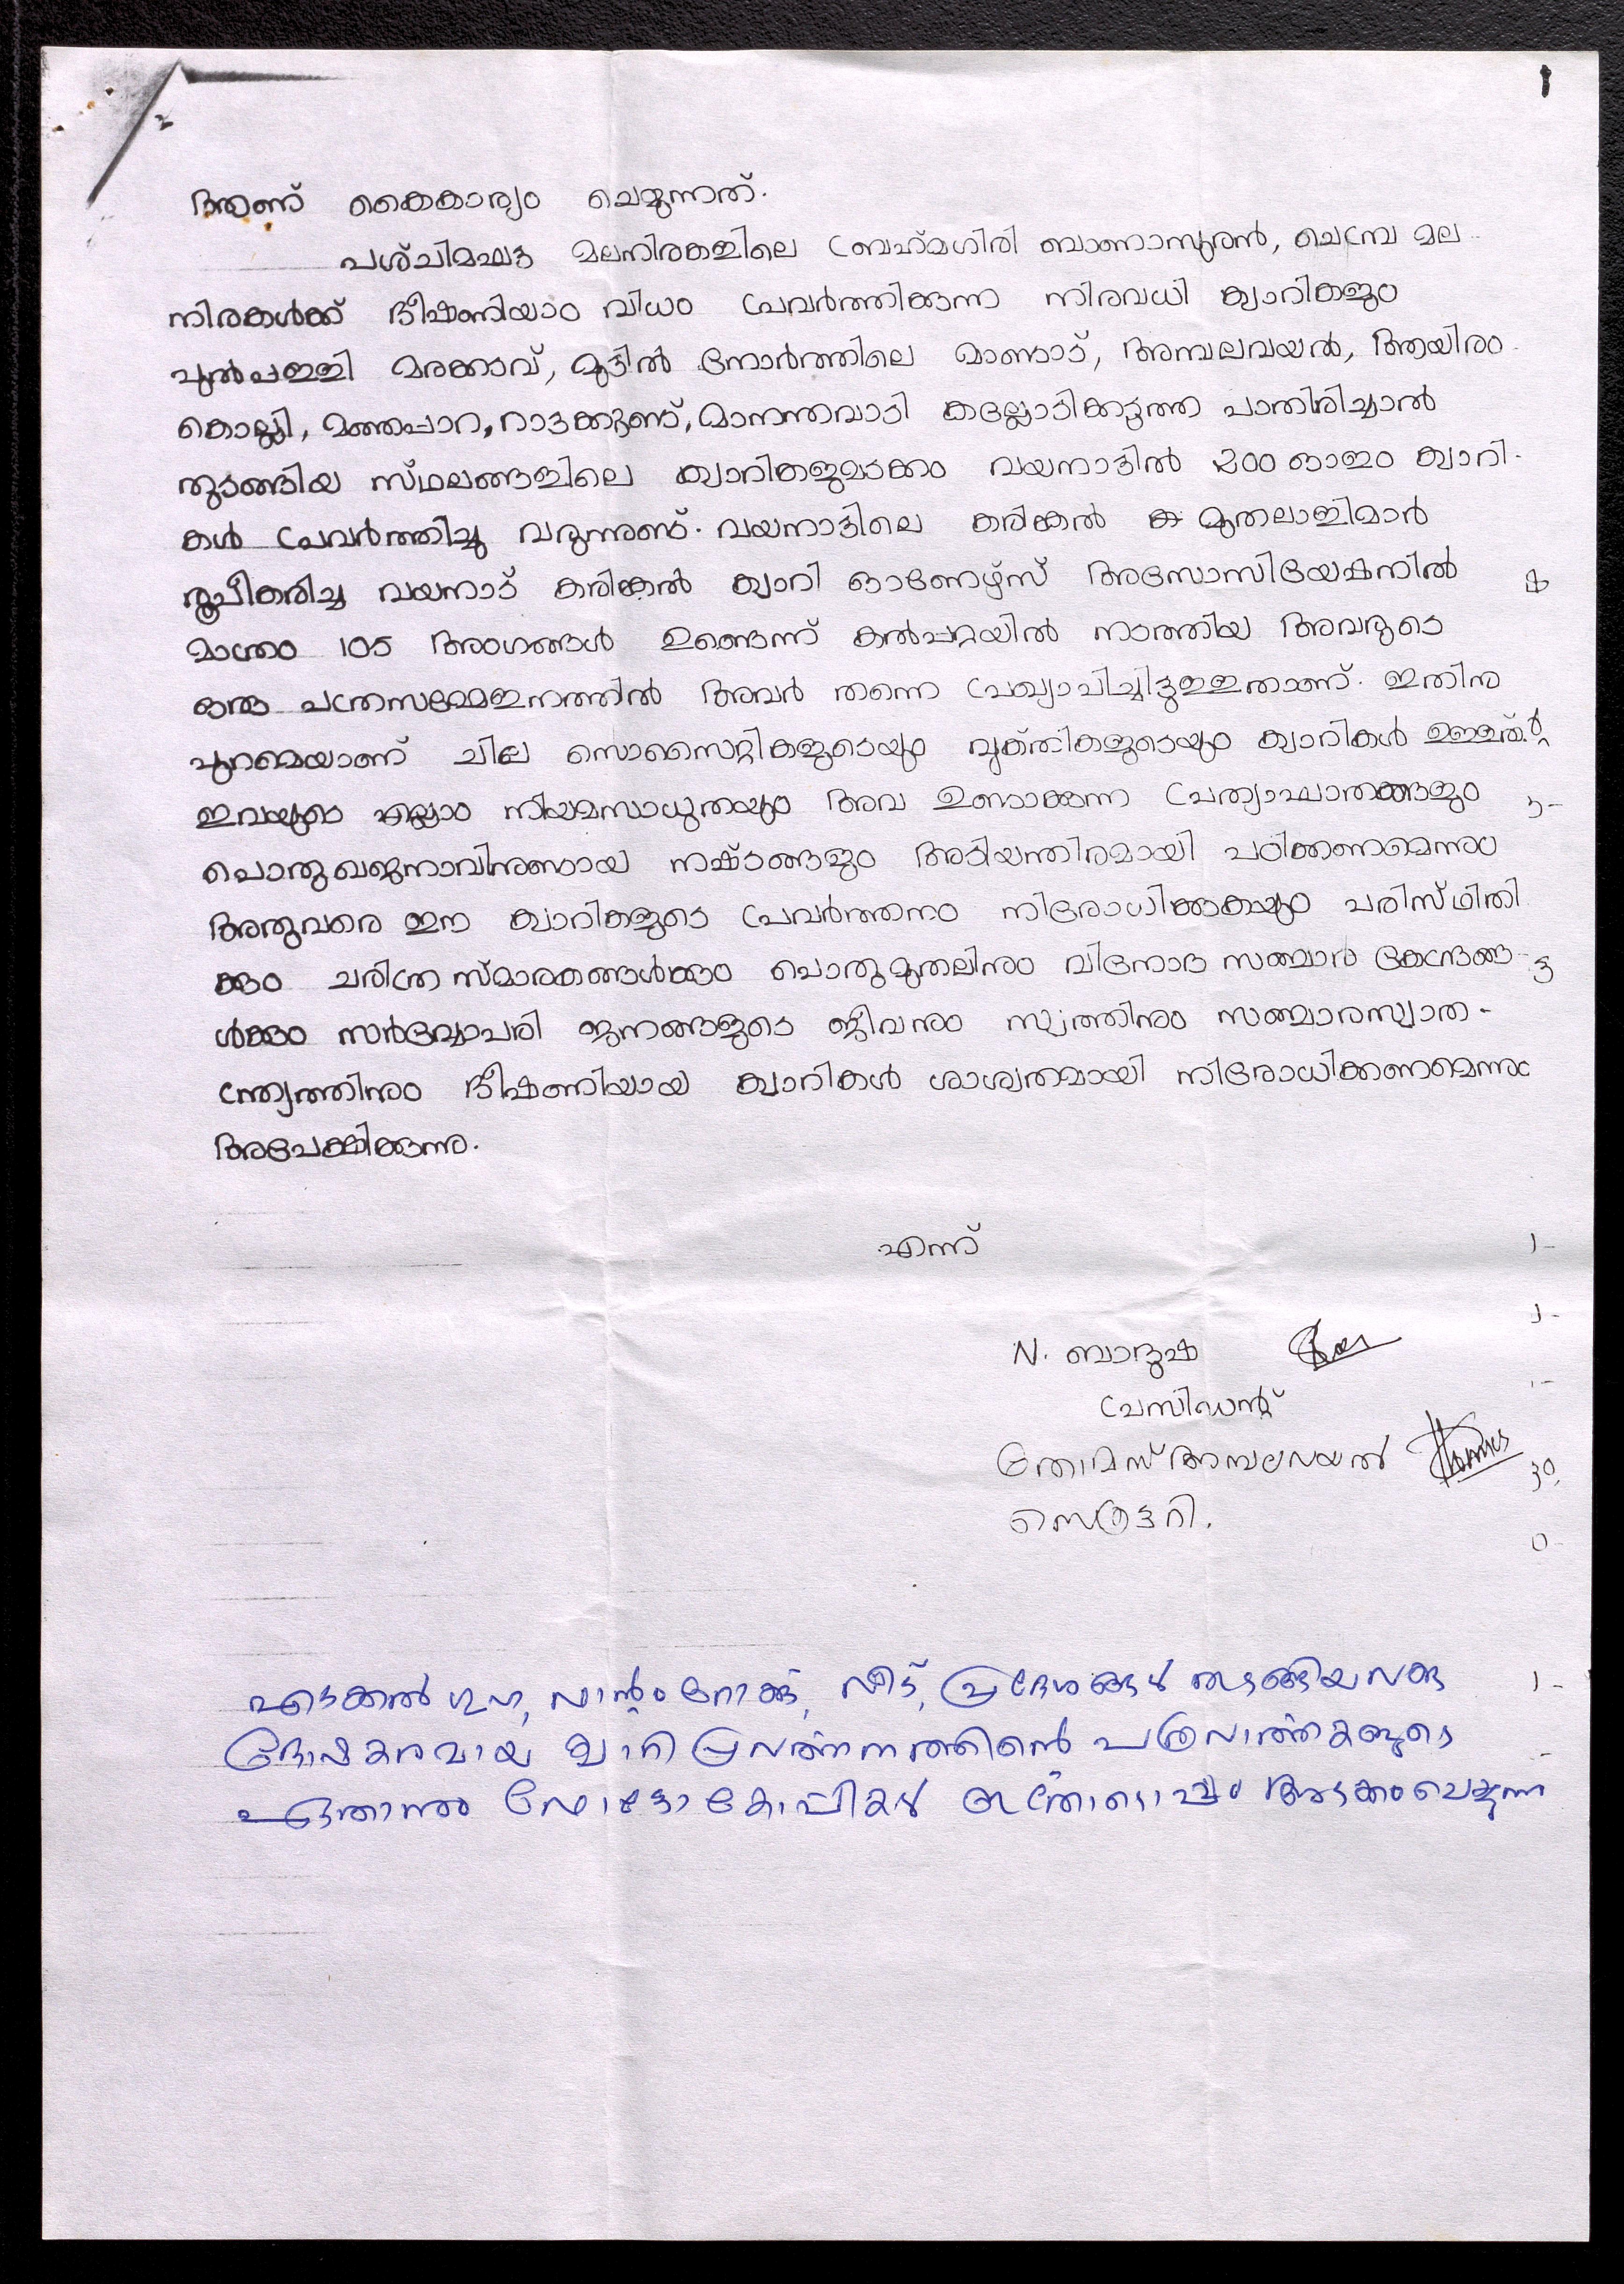 2
1
ആണ് കൈകാര്യം ചെയ്യുന്നത്.
പശ്ചിമഘട്ട മലനിരകളിലെ ബ്രഹ്മഗിരി ബാണാസുരൻ, ചെമ്പ്ര മല-
നിരകൾക്ക് ഭീഷണിയാം വിധം പ്രവർത്തിക്കുന്ന നിരവധി ക്വാറികളും
പുൽപ്പള്ളി മരക്കാവ്, മുട്ടിൽ നോർത്തിലെ മാണ്ടാട്, അമ്പലവയൽ, ആയിരം-
കൊല്ലി, മഞ്ഞപ്പാറ, റാട്ടക്കുണ്ട്, മാനന്തവാടി കല്ലോടിക്കടുത്ത പാതിരിച്ചാൽ
തുടങ്ങിയ സ്ഥലങ്ങളിലെ ക്വാറികളുമടക്കം വയനാട്ടിൽ 200 ഓളം ക്വാറി-
കൾ പ്രവർത്തിച്ചു വരുന്നുണ്ട്. വയനാട്ടിലെ കരിങ്കൽ മുതലാളിമാർ
രൂപീകരിച്ച വയനാട് കരിങ്കൽ ക്വാറി ഓണേഴ്സ് അസോസിയേഷനിൽ
മാത്രം 105 അംഗങ്ങൾ ഉണ്ടെന്ന് കൽപ്പറ്റയിൽ നടത്തിയ അവരുടെ
ഒരു പത്രസമ്മേളനത്തിൽ അവർ തന്നെ പ്രഖ്യാപിച്ചിട്ടുള്ളതാണ്. ഇതിനു
പുറമെയാണ് ചില സൊസൈറ്റികളുടെയും വ്യക്തികളുടെയും ക്വാറികൾ ഉള്ളത്.
ഇവയുടെ എല്ലാം നിയമസാധുതയും അവ ഉണ്ടാക്കുന്ന പ്രത്യാഘാതങ്ങളും
പൊതുഖജനാവിനുണ്ടായ നഷ്ടങ്ങളും അടിയന്തിരമായി പഠിക്കണമെന്നും
അതുവരെ ഈ ക്വാറികളുടെ പ്രവർത്തനം നിരോധിക്കുകയും പരിസ്ഥിതി
ക്കും ചരിത്ര സ്മാരകങ്ങൾക്കും പൊതുമുതലിനും വിനോദ സഞ്ചാര കേന്ദ്രങ്ങ-
ൾക്കും സർവ്വോപരി ജനങ്ങളുടെ ജീവനും സ്വത്തിനും സഞ്ചാരസ്വാത-
ന്ത്ര്യത്തിനും ഭീഷണിയായ ക്വാറികൾ ശാശ്വതമായി നിരോധിക്കണമെന്നും
അപേക്ഷിക്കുന്നു.
എന്ന്
N. ബാദുഷ
പ്രസിഡന്റ്
തോമസ് അമ്പലവയൽ
സെക്രട്ടറി.
എടക്കൽ ഗുഹ, പ്രദേശങ്ങൾ തുടങ്ങിയവക്കു
ദോഷകരമായ ക്വാറി പ്രവർത്തനത്തിന്റെ പത്രവാർത്തകളുടെ
ഏതാനും ഫോട്ടോ കോപ്പികൾ ഇതോടൊപ്പം അടക്കം ചെയ്യുന്നു